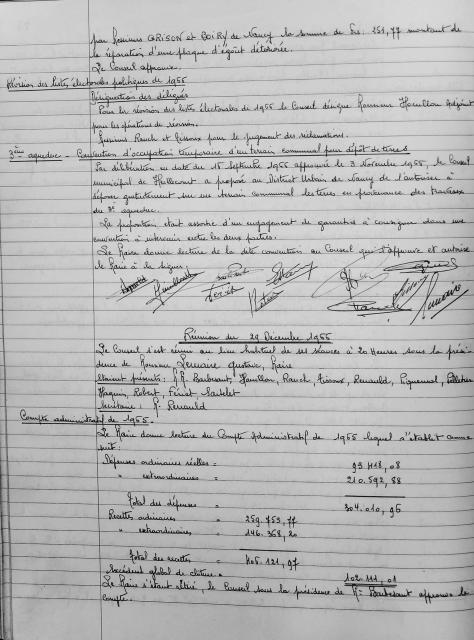 par Messieurs GRISON et BOIRY de Nancy la somme de Frs: 251,77 montant de
la réparation d'une plaque d'égoût détériorée.
Le Conseil approuve.
Révision des listes électorales politiques de 1966
Désignation des délégués
Pour la révision des listes électorales de 1966 le Conseil désigne Monsieur Houillon Adjoint
pour les opérations de révision.
Messieurs Rauch et pour le jugement des réclamations.
3ème aqueduc - Convention d'occupation temporaire d'un terrain communal pour dépôt de terres
Par délibération en date du 15 Septembre 1966 approuvée le 3 Novembre 1966, le Conseil
municipal de a proposé au District Urbain de Nancy de l'autoriser à
déposer gratuitement sur un terrain communal les terres en provenance des travaux
du 3e aqueduc.
La proposition était assortie d'un engagement de garantie à consigner dans une
convention à intervenir entre les deux parties.
Le Maire donne lecture de la dite convention au Conseil qui l'approuve et autorise
le Maire à la signer.
Réunion du 29 Décembre 1966
Le Conseil s'est réuni au lieu habituel de ses séances à 20 Heures sous la prési-
dence de Monsieur Lemaire Gustave, Maire
Etaient présents: M.M. Houillon, Rauch, Renauld, Piquemal, Pelletier
Robert,
Secrétaire: M. Renauld
Compte administratif de 1966.
Le Maire donne lecture du Compte Administratif de 1966 lequel s'établit comme
suit:
Dépenses ordinaires réelles = 93.418,08
" extraordinaires = 210.592,88
Total des dépenses = 304.010,96
Recettes ordinaires = 259.753,77
" extraordinaires = 146.368,20
Total des recettes = 406.121,97
Excédent global de clôture = 102.111,01
Le Maire s'étant retiré, le Conseil sous la présidence de Mr approuve le
compte.